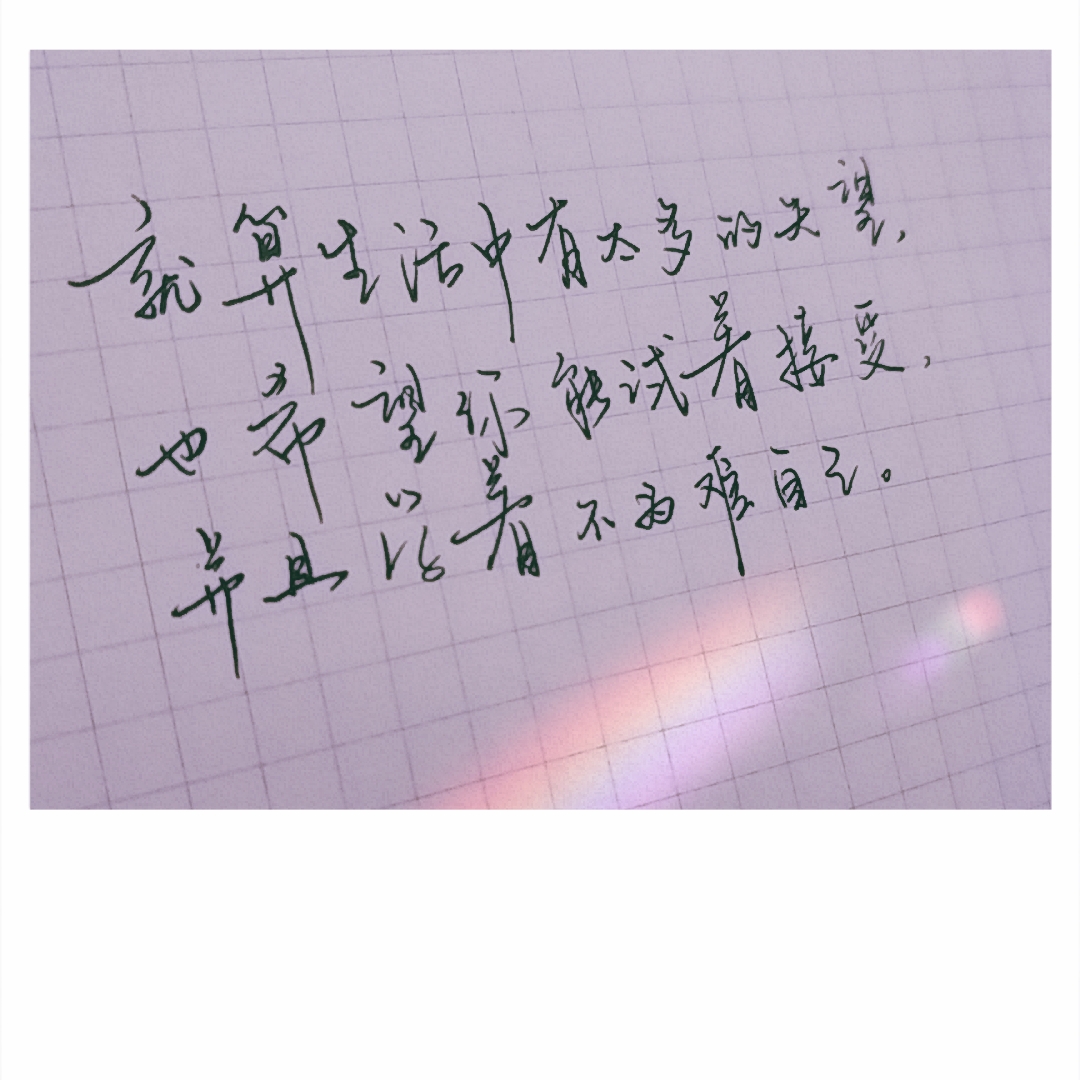 就算生活中有太多的失望,
也希望你能试着接受,
并且试着不为难自己。